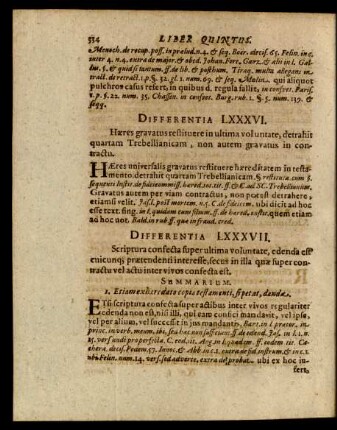 534 LIBER QUINTUS.
Menoch. de recup. poss. in prælud. n. 4. & seq. Boër. decis. 65. Felin. in c.
inter 4. n. 4. extra de major. & obed. Johan. Ferr. Garz. & alii in l. Gal-
lus. §. & quid si tantum. ff. de lib. & posthum. Tiraq. multa allegans in
tract. de retract. l. p. §. 32. gl. 1. num. 69. & seq. Molin. qui aliquot
pulchros casus refert, in quibus d. regula fallit, in consuet. Paris.
t. p. §. 22. num. 35. Chassen. in consuet. Burg. rub. 1. §. 5. num. 139. &
seqq.
DIFFERENTIA LXXXVI.
Hæres gravatus restituere in ultima voluntate, detrahit
quartam Trebellianicam, non autem gravatus in con-
tractu.
HÆres universalis gravatus restituere hæreditatem in testa-
mento detrahit quartam Trebellianicam. § restituta cum l.
sequenti Instit. de fideicommiss. hæred. toto. tit. ff. & C. ad SC. Trebellianum.
Gravatus autem per viam contractus, non potest detrahere,
etiamsi velit. Jas. l. post mortem. n. 5. C. de fideicom. ubi dicit ad hoc
esse text. sing. in l. quidam cum filium. ff. de hæred. instit. quem etiam
ad hoc not. Bald. in rub. ff. quæ in fraud. cred.
DIFFERENTIA LXXXVII.
Scriptura confecta super ultima voluntate, edenda est
cuicunq; prætendenti interesse, secus in illa quæ super con-
tractu vel actu inter vivos confecta est.
SUMMARIUM.
1. Etiam exhæredato copia testamenti, si petat, danda.
ETsi scriptura confecta super actibus inter vivos regulariter
edenda non est, nisi illi, qui eam confici mandavit, vel ipse,
vel per alium, vel successit in jus mandantis, Bart. in l. prætor. in
princ. in verb. meum. ibi, seu hæc non sufficiunt. ff. de edend. Jas. in l. 1. n.
15. vers. undi proper filia. C. eod. tit. Ang. in l. quædam. ff. eodem tit. Ca-
chera. decis. Pedem. 57. Innoc. & Abb. in c. 1. extra de fid. instrum. & in c. 1.
ubi Felin. num. 14. vers. sed adverte, extra de probat. ubi ex hoc in-
fert,